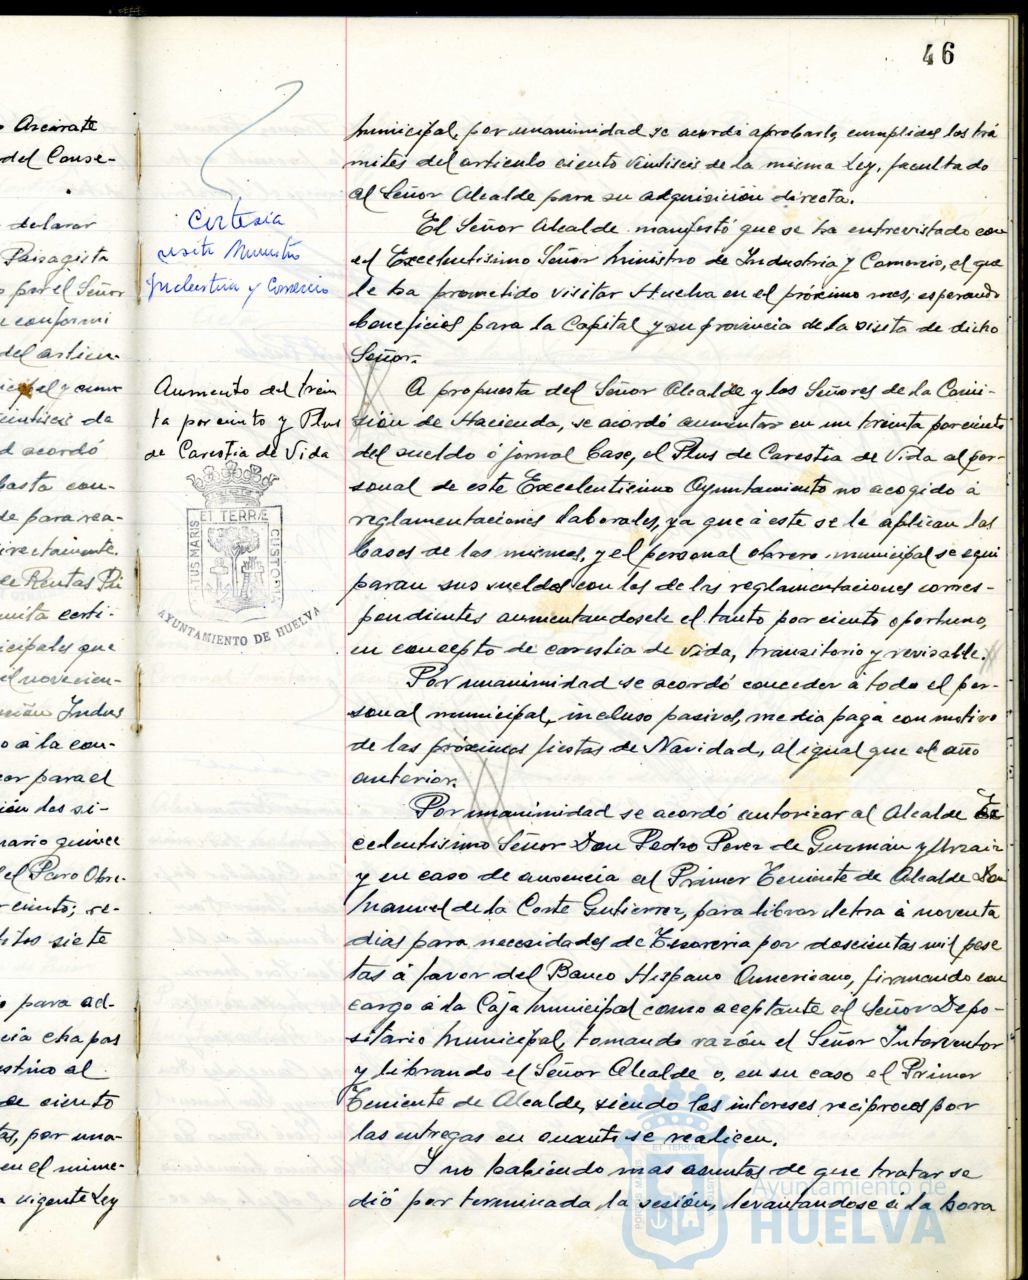 46
o Ascarate
del Conse-
declarar
Paisagista
o por el Señor
conformi
del articu-
cipal y cum
veintiseis de
d acordó
basta con-
de para rea-
irectamente.
de Rentas Pú
mita certi-
icipales que
il novecien-
nción Indus
o a la con-
cor para el
ion los si-
nario quince
el Paro Obre-
ciento; re-
ditos siete
o para ad-
cia chapas
estino al
de ciento
tas, por una-
en el nume-
a vigente Ley
Cortesia
visita Ministro
Industria y Comercio
Aumento del trein
ta por ciento y Plus
de Carestia de Vida
PORTUS MARIS ET TERRÆ CUSTODIA
AYUNTAMIENTO DE HUELVA
municipal, por unanimidad se acordó aprobarlo, cumplidos los trá
mites del articulo ciento veintiseis de la misma Ley, facultado
al Señor Alcalde para su adquisición directa.
El Señor Alcalde manifestó que se ha entrevistado con
el Excelentisimo Señor Ministro de Industria y Comercio, el que
le ha prometido visitar Huelva en el próximo mes, esperando
beneficios para la Capital y su provincia de la visita de dicho
Señor.
A propuesta del Señor Alcalde y los Señores de la Comi-
sión de Hacienda, se acordó aumentar en un treinta por ciento
del sueldo ó jornal base, el Plus de Carestia de Vida al per-
sonal de este Excelentisimo Ayuntamiento no acogido á
reglamentaciones laborales, ya que á este se le aplican las
bases de las mismas, y el personal obrero municipal se equi
paran sus sueldos con los de las reglamentaciones corres-
pondientes aumentandosele el tanto por ciento oportuno,
en concepto de carestia de vida, transitorio y revisable.
Por unanimidad se acordó conceder á todo el per-
sonal municipal, incluso pasivos, media paga con motivo
de las próximas fiestas de Navidad, al igual que el año
anterior.
Por unanimidad se acordó autorizar al Alcalde Ex
celentisimo Señor Don Pedro Perez de Guzmán y Urzaiz
y en caso de ausencia al Primer Teniente de Alcalde Don
Manuel de la Corte Gutierrez, para librar letra á noventa
dias para necesidades de Tesoreria por doscientas mil pese
tas á favor del Banco Hispano Americano, firmando con
cargo á la Caja Municipal como aceptante el Señor Depo-
sitario Municipal, tomando razón el Señor Interventor
y librando el Señor Alcalde o, en su caso el Primer
Teniente de Alcalde, siendo los intereses reciprocos por
las entregas en cuanto se realicen.
Y no habiendo mas asuntos de que tratar se
dió por terminada la sesión, levantandose á la hora
Ayuntamiento de
HUELVA